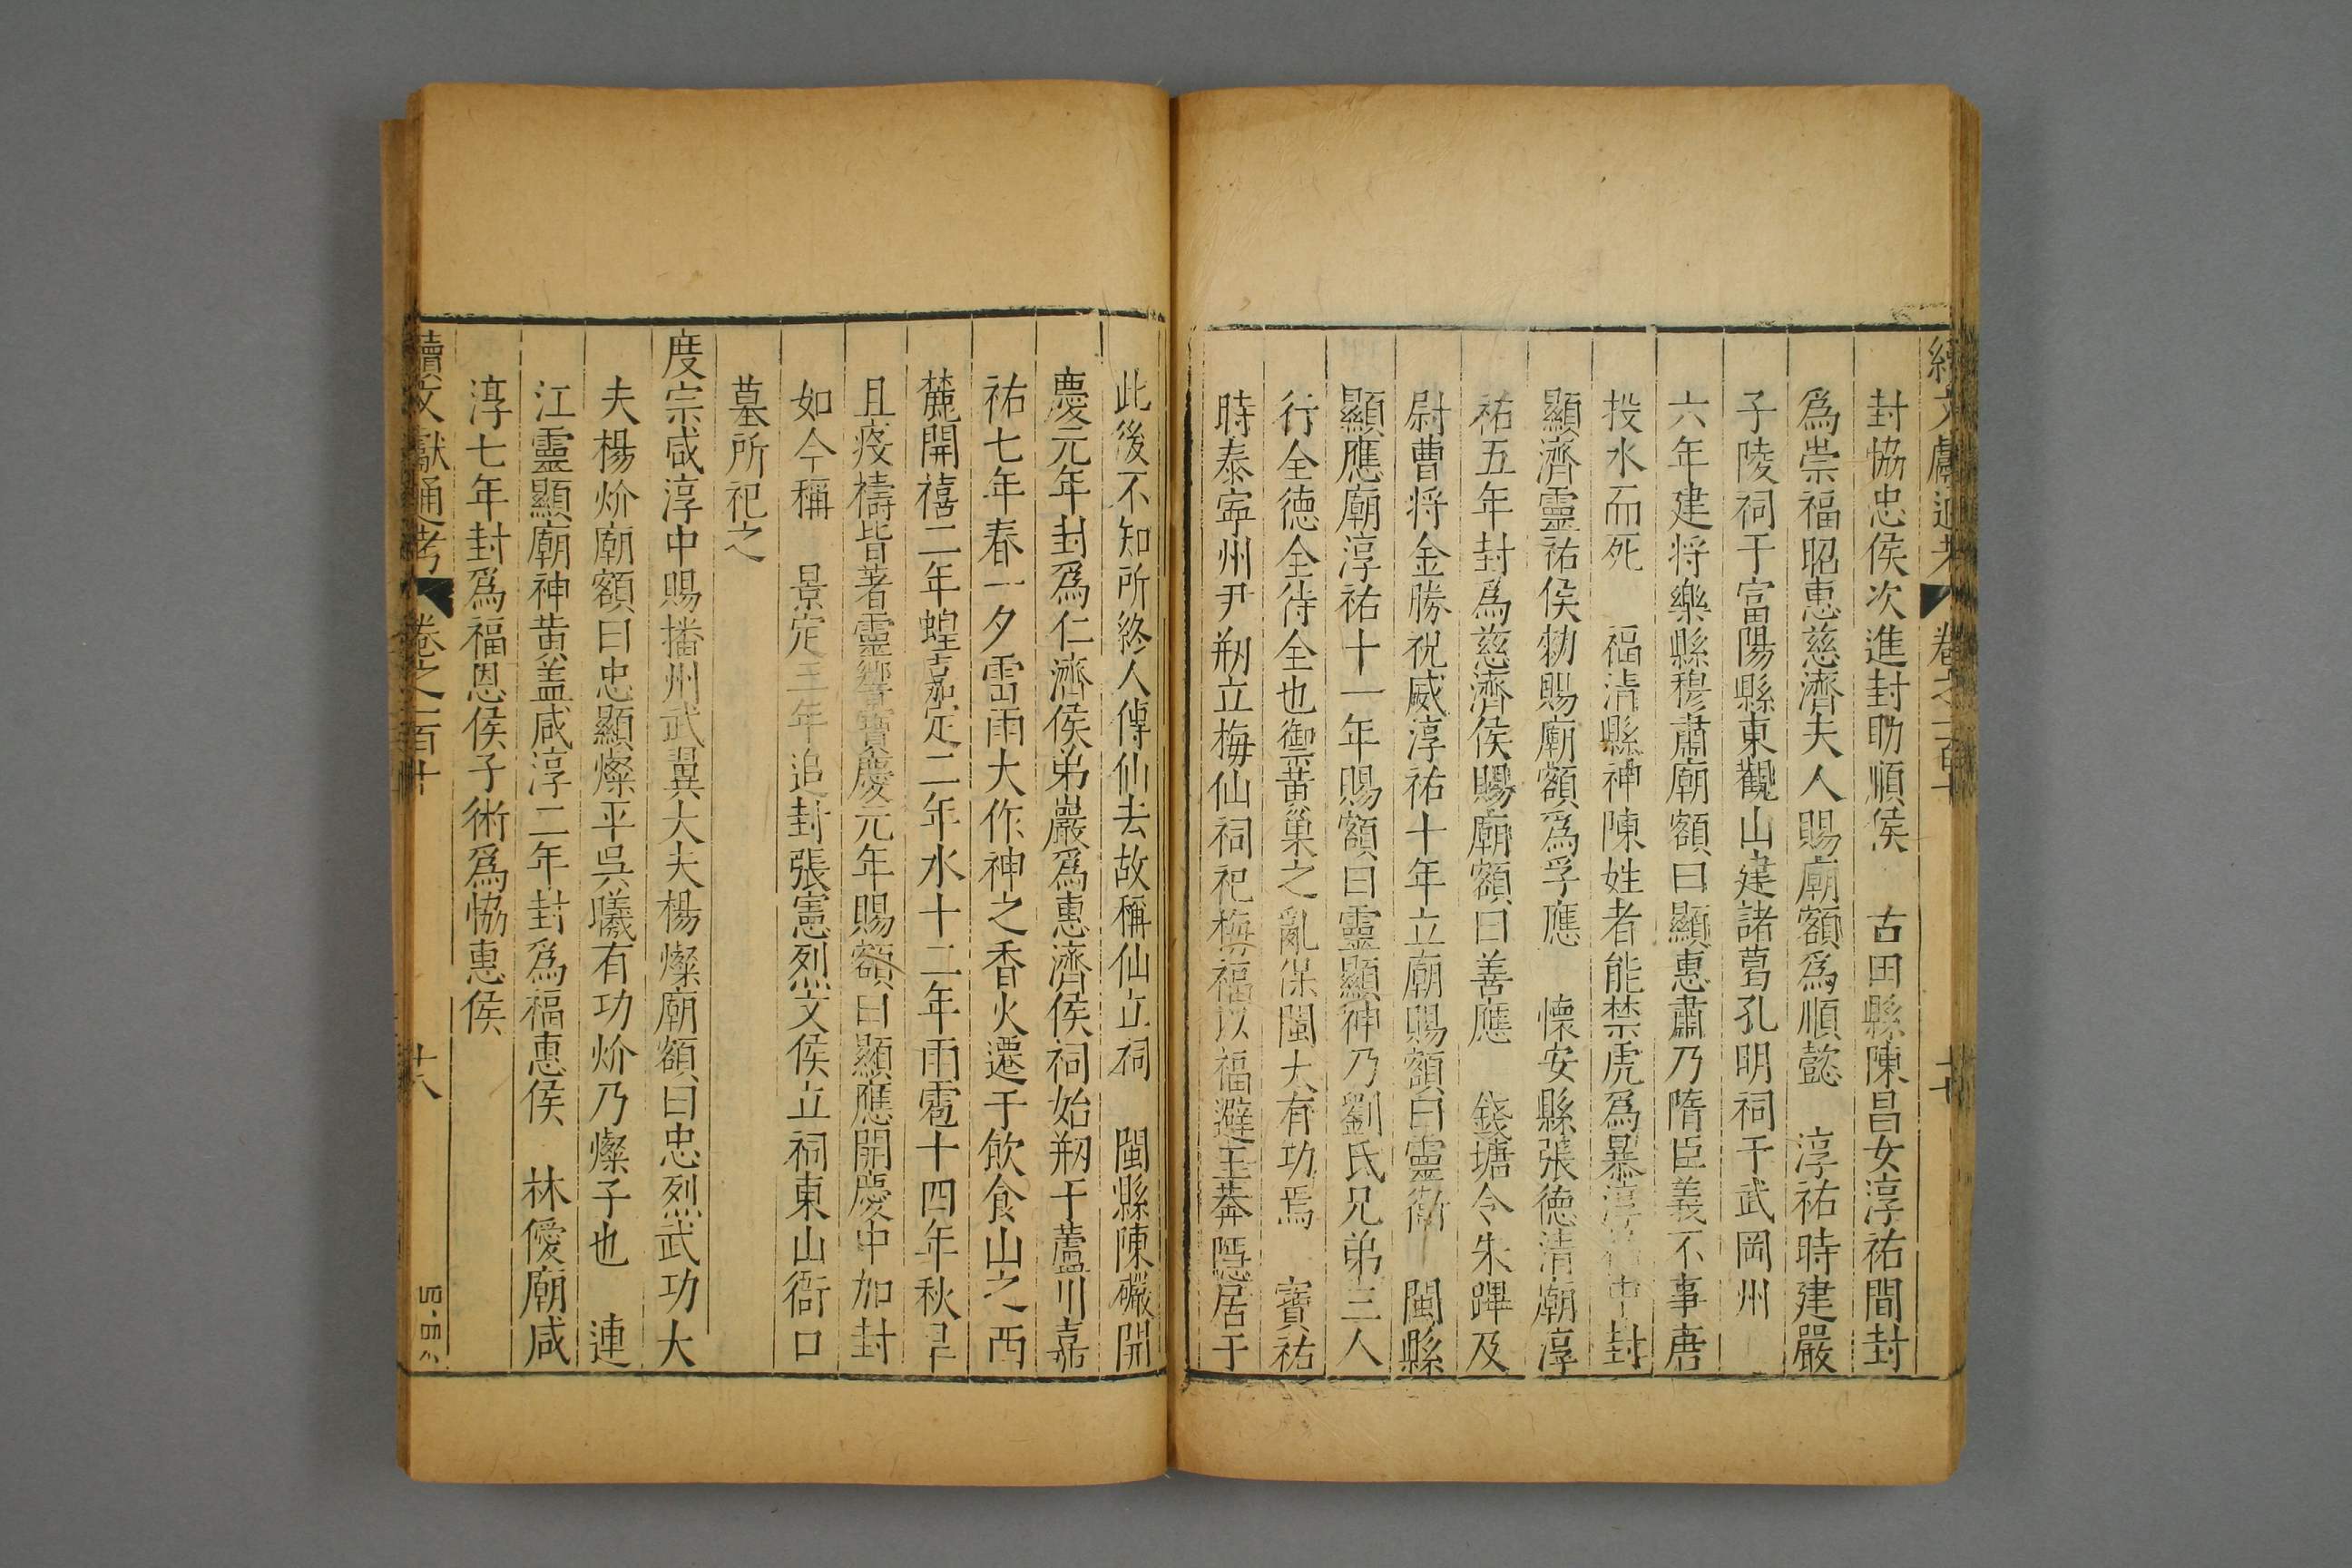 續文獻通考 卷之一百十
封協忠侯次進封助順侯 古田縣陳昌女淳祐間封
爲崇福昭惠慈濟夫人賜廟額爲順懿 淳祐時建嚴
子陵祠于富陽縣東觀山建諸葛孔明祠于武岡州
六年建将樂縣穆肅廟額曰顯惠肅乃隋臣義不事唐
投水而死 福清縣神陳姓者能禁虎爲暴淳 中封
顯濟靈祐侯勑賜廟額爲孚應 懷安縣張德清廟淳
祐五年封爲慈濟侯賜廟額曰善應 錢塘令朱蹕及
尉曹将金勝祝威淳祐十年立廟賜額曰靈衛 閩縣
顯應廟淳祐十一年賜額曰靈顯神乃劉氏兄弟三人
行全德全待全也禦黃巢之亂保閩大有功焉 寶祐
時泰寧州尹剏立梅仙祠祀梅福以福避王莽隱居于
此後不知所終人傳仙去故稱仙立祠 閩縣陳礹開
慶元年封爲仁濟侯弟巖爲惠濟侯祠始剏于蘆川嘉
祐七年春一夕雷雨大作神之香火遷于飲食山之西
麓開禧二年蝗嘉定二年水十二年雨雹十四年秋旱
且疫禱皆著靈響寶慶元年賜額曰顯應開慶中加封
如今稱 景定三年追封張憲烈文侯立祠東山衙口
墓所祀之
度宗咸淳中賜播州武翼大夫楊燦廟額曰忠烈武功大
夫楊炌廟額曰忠顯燦平吳曦有功炌乃燦子也 連
江靈顯廟神黃盖咸淳二年封爲福惠侯 林僾廟咸
淳七年封爲福恩侯子術爲協惠侯
續文獻通考 卷之一百十 十八